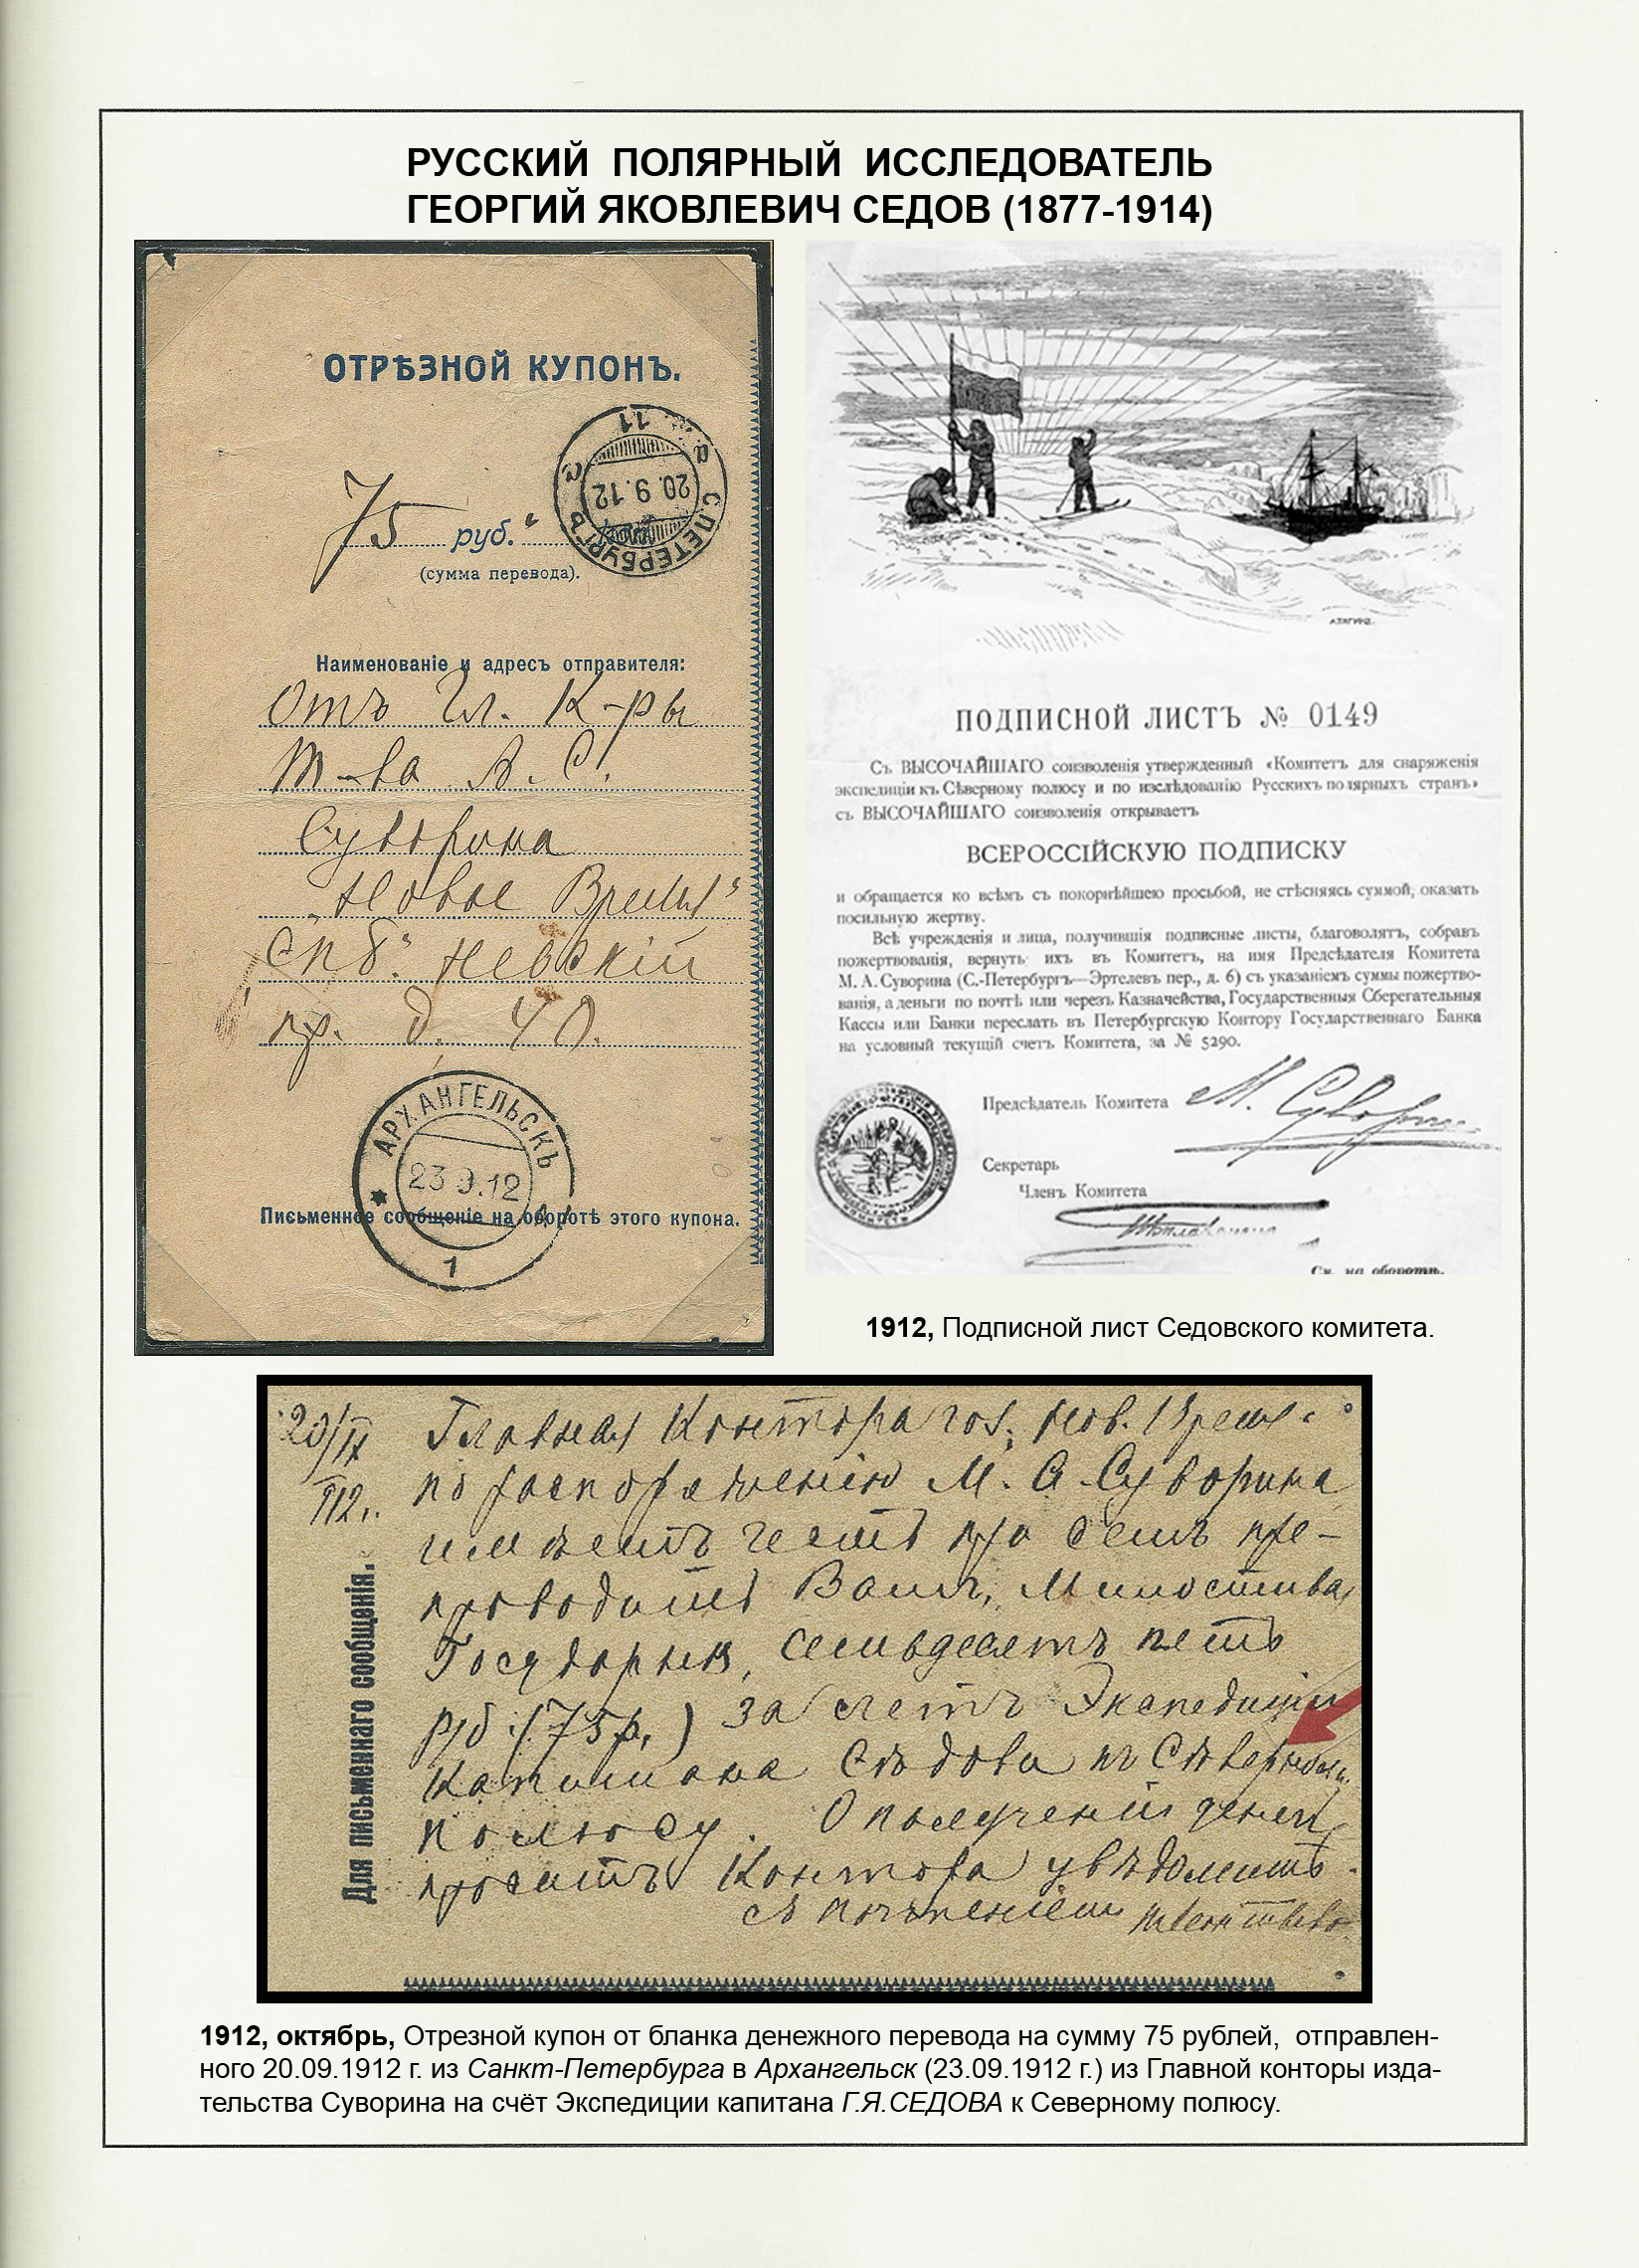 РУССКИЙ ПОЛЯРНЫЙ ИССЛЕДОВАТЕЛЬ
ГЕОРГИЙ ЯКОВЛЕВИЧ СЕДОВ (1877-1914)
ОТРѢЗНОЙ КУПОНЪ.
75 руб. коп.
(сумма перевода).
С.ПЕТЕРБУРГЪ
20.9.12
11
Наименованіе и адресъ отправителя:
Отъ Гл. К-ры
Т-ва А. С.
Суворина
„Новое Время"
Спб. Невскій
пр. д. 40.
АРХАНГЕЛЬСКЪ
23.9.12
1
Письменное сообщеніе на оборотѣ этого купона.
ПОДПИСНОЙ ЛИСТЪ № 0149
Съ ВЫСОЧАЙШАГО соизволенія утвержденный «Комитетъ для снаряженія
экспедиціи къ Сѣверному полюсу и по изслѣдованію Русскихъ полярныхъ странъ»
съ ВЫСОЧАЙШАГО соизволенія открываетъ
ВСЕРОССІЙСКУЮ ПОДПИСКУ
и обращается ко всѣмъ съ покорнѣйшею просьбой, не стѣсняясь суммой, оказать
посильную жертву.
Всѣ учрежденія и лица, получившія подписные листы, благоволятъ, собравъ
пожертвованія, вернуть ихъ въ Комитетъ, на имя Предсѣдателя Комитета
М. А. Суворина (С.-Петербургъ—Эртелевъ пер., д. 6) съ указаніемъ суммы пожертво-
ванія, а деньги по почтѣ или черезъ Казначейства, Государственныя Сберегательныя
Кассы или Банки переслать въ Петербургскую Контору Государственнаго Банка
на условный текущій счетъ Комитета, за № 5290.
Предсѣдатель Комитета М. Суворин
Секретарь
Членъ Комитета
См. на оборотѣ.
1912, Подписной лист Седовского комитета.
20/IX
912 г.
Для письменнаго сообщенія.
Главная Контора газ. Нов. Время
по распоряженію М. А. Суворина
имѣетъ честь при семъ пре-
проводить Вамъ, Милостивая
Государыня, семьдесятъ пять
руб. (75 р.) за счетъ Экспедиціи
Капитана Сѣдова къ Сѣверному
полюсу. О полученіи денегъ
проситъ Контора увѣдомить.
Съ почтеніемъ
1912, октябрь, Отрезной купон от бланка денежного перевода на сумму 75 рублей, отправлен-
ного 20.09.1912 г. из Санкт-Петербурга в Архангельск (23.09.1912 г.) из Главной конторы изда-
тельства Суворина на счёт Экспедиции капитана Г.Я.СЕДОВА к Северному полюсу.